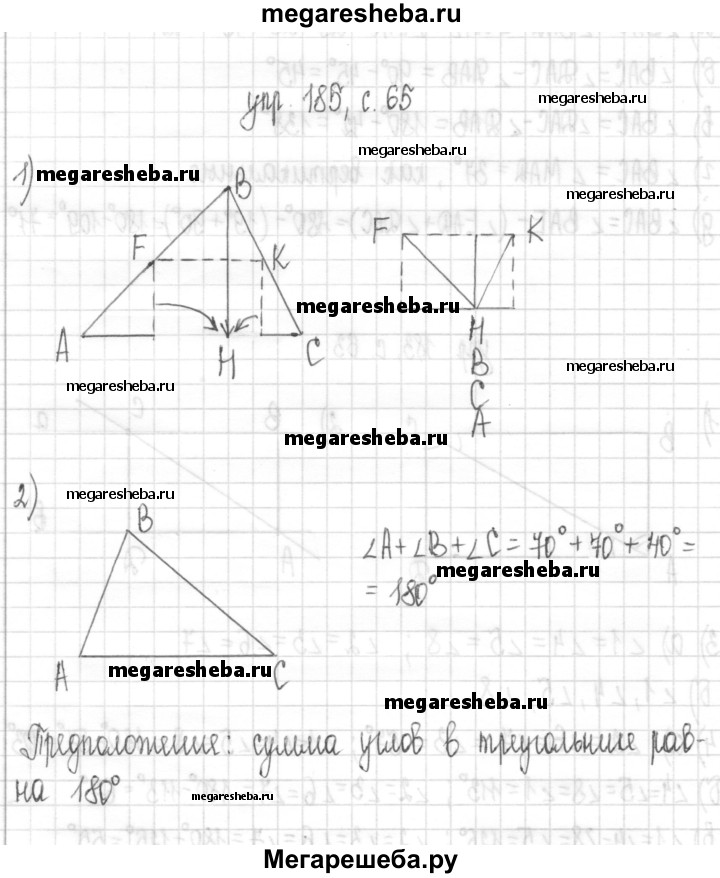 megaresheba.ru
упр. 185, с. 65
megaresheba.ru
megaresheba.ru
1)
megaresheba.ru
B
megaresheba.ru
F
K
A
H
C
F
K
megaresheba.ru
H
B
C
A
megaresheba.ru
megaresheba.ru
megaresheba.ru
2)
megaresheba.ru
B
A
C
∠A+∠B+∠C = 70°+70°+40°=
megaresheba.ru
= 180°
megaresheba.ru
megaresheba.ru
Предположение: сумма углов в треугольнике рав-
на 180°
megaresheba.ru
Мегарешеба.ру